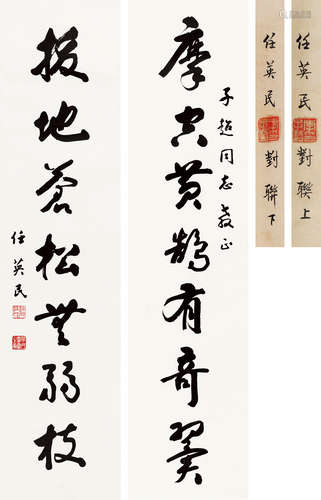 摩空黄鹄有奇翼
子超同志教正
拔地苍松无弱枝
任英民
任英民 對聯上
任英民 對聯下